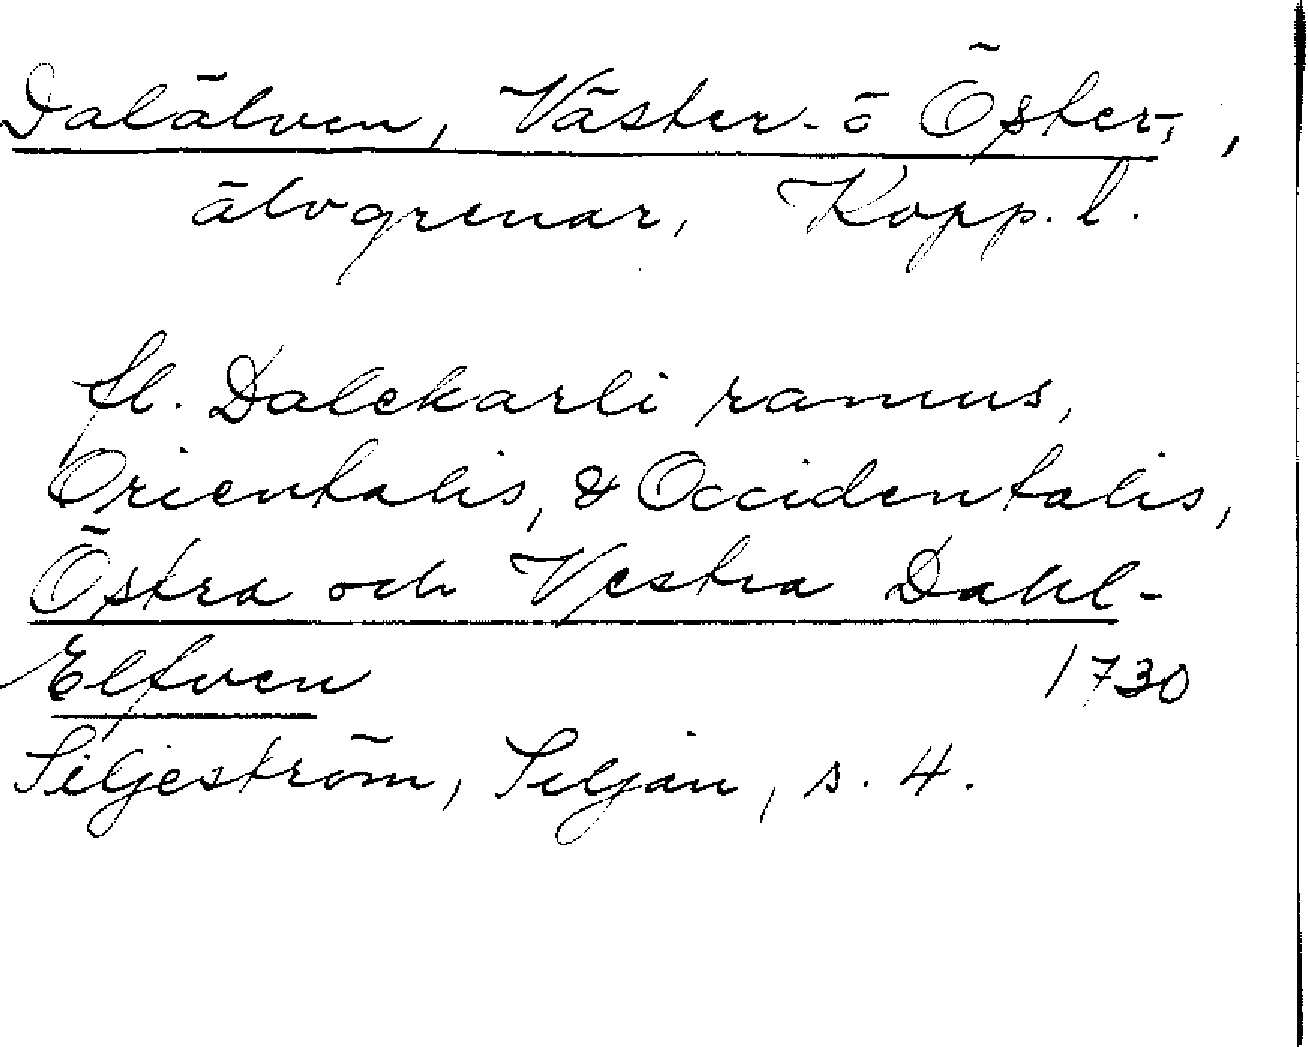 Dalälven, Väster- o Öster-, ,
älvgrenar, Kopp. l.
fl. Dalekarli ramus,
Orientalis, & Occidentalis,
Östra och Vestra Dahl-
Elfven 1730
Siljeström, Siljan, s. 4.